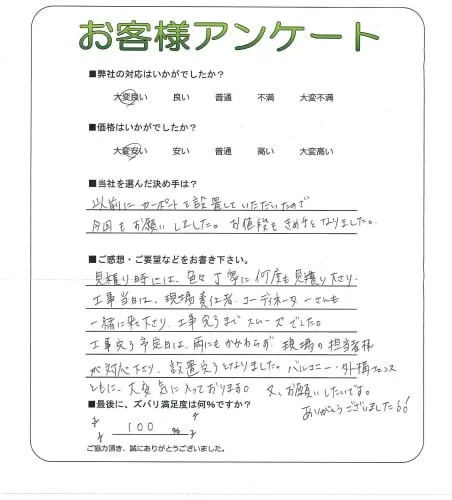 お客様アンケート
■弊社の対応はいかがでしたか?
大変良い 良い 普通 不満 大変不満
■価格はいかがでしたか?
大変安い 安い 普通 高い 大変高い
■当社を選んだ決め手は?
以前にカーポートを設置していただいたので
今回もお願いしました。お値段もきめ手となりました。
■ご感想・ご要望などをお書き下さい。
見積り時には、色々丁寧に何度も見積り下さり、
工事当日は、現場責任者、コーディネーターさんも
一緒に来て下さり、工事完了までスムーズでした。
工事完了予定日は、雨にもかかわらず、現場の担当者様
が対応下さり、設置完了となりました。バルコニー・外構フェンス
ともに、大変気に入っております。又、お願いしたいです。
ありがとうございました!!
■最後に、ズバリ満足度は何%ですか?
100 %
ご協力頂き、誠にありがとうございました。